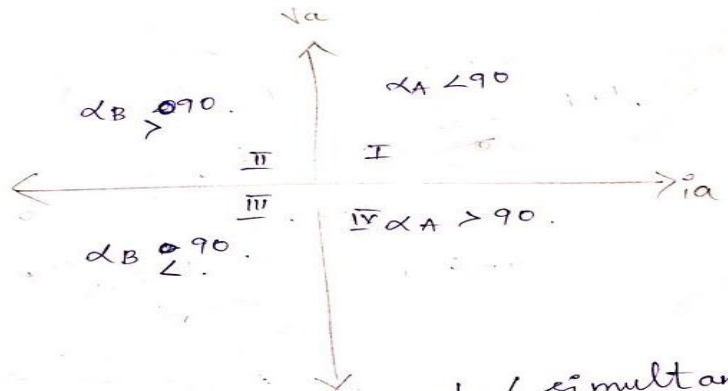 Va
αA <90
αB >90.
II I
ia
III IV αA > 90.
αB < 90.
simultan